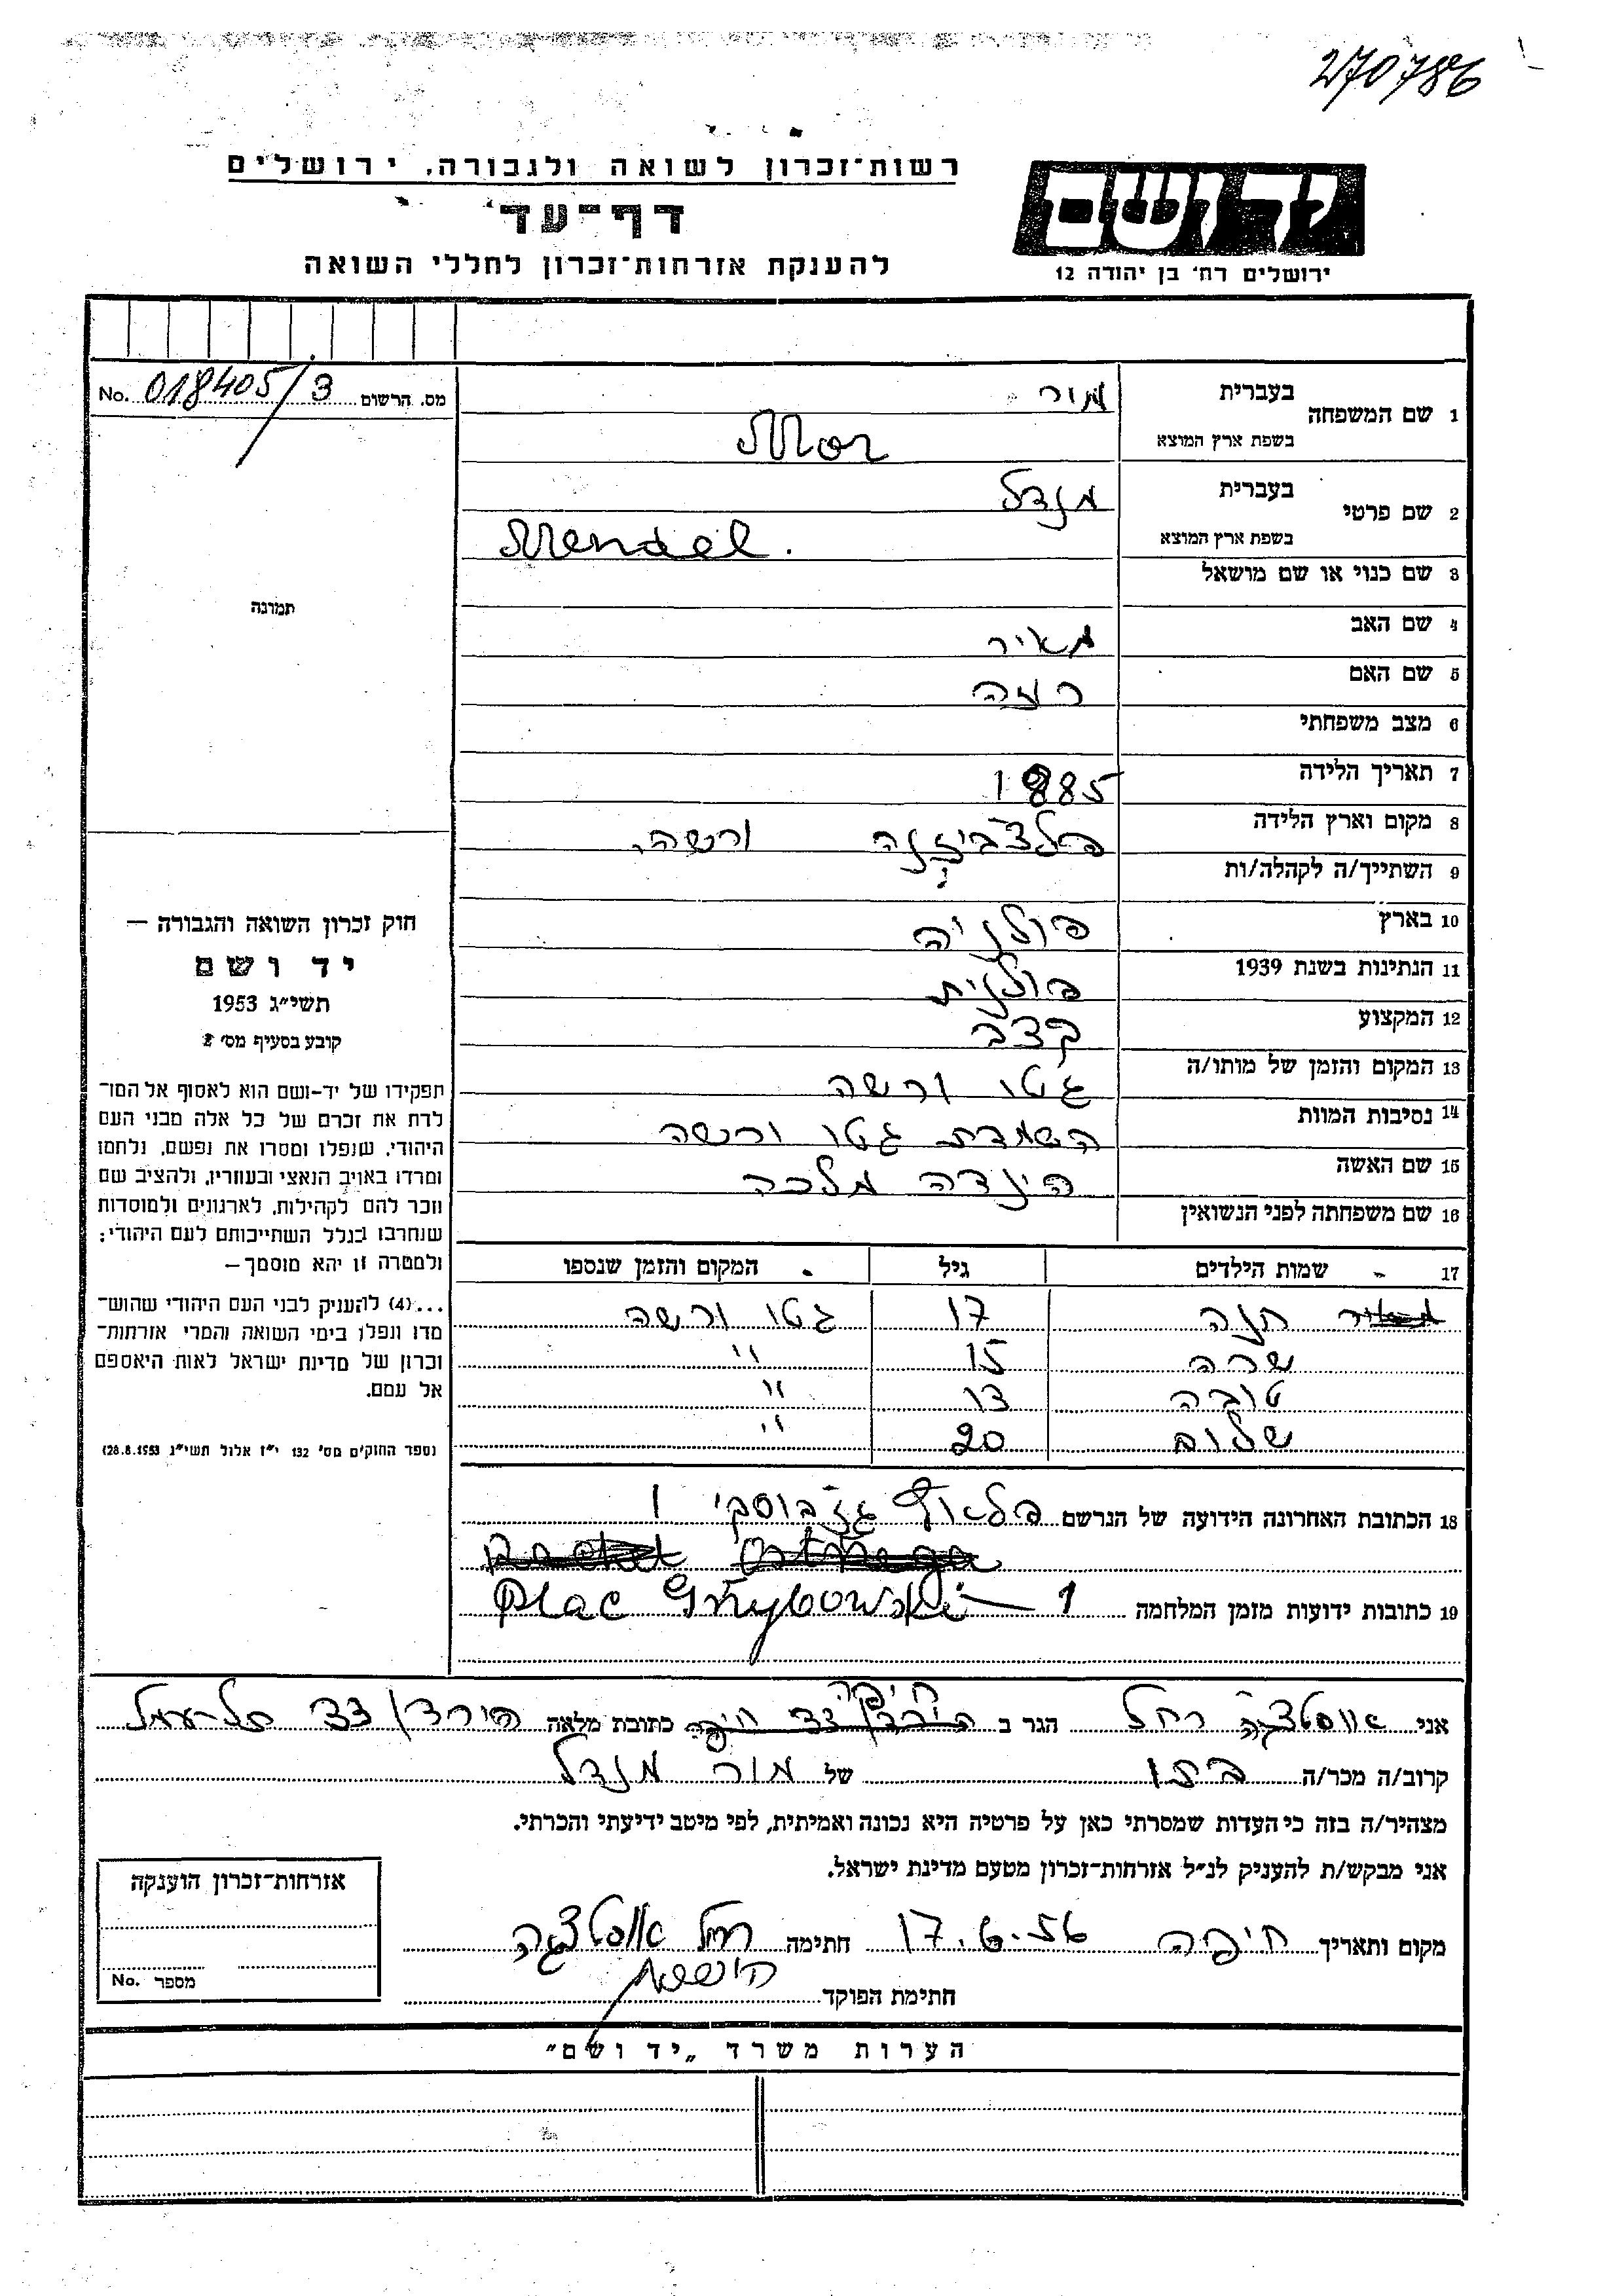 270786
רשות־זכרון לשואה ולגבורה. ירושלים
דף־עד
להענקת אזרחות־זכרון לחללי השואה
יד ושם
ירושלים רח׳ בן יהודה 12
מס. הרשום 018405/3 No.
1 שם המשפחה בעברית מור
בשפת ארץ המוצא Mor
2 שם פרטי בעברית מנדל
בשפת ארץ המוצא Mendel.
3 שם כנוי או שם מושאל
4 שם האב מאיר
5 שם האם רוזה
6 מצב משפחתי
7 תאריך הלידה 1885
8 מקום וארץ הלידה ורשה.
9 השתייך/ה לקהלה/ות
10 בארץ פולניה
11 הנתינות בשנת 1939 פולנית
12 המקצוע קצב
13 המקום והזמן של מותו/ה גטו ורשה
14 נסיבות המוות השמדת גטו ורשה
15 שם האשה הינדה מלכה
16 שם משפחתה לפני הנשואין
17 שמות הילדים גיל המקום והזמן שנספו
חנה 17 גטו ורשה
שרה 15 "
טובה 13 "
שלום 20 "
18 הכתובת האחרונה הידועה של הנרשם פלאץ גז׳בוסקי 1
19 כתובות ידועות מזמן המלחמה Plac Gżybowski - 1
תמונה
חוק זכרון השואה והגבורה —
יד ושם
תשי״ג 1953
קובע בסעיף מס׳ 2
תפקידו של יד־ושם הוא לאסוף אל המו־
לדת את זכרם של כל אלה מבני העם
היהודי, שנפלו ומסרו את נפשם, נלחמו
ומרדו באויב הנאצי ובעוזריו, ולהציב שם
וזכר להם לקהילות, לארגונים ולמוסדות
שנחרבו בגלל השתייכותם לעם היהודי;
ולמטרה זו יהא מוסמך —
...(4) להעניק לבני העם היהודי שהוש־
מדו ונפלו בימי השואה והמרי אזרחות־
זכרון של מדינת ישראל לאות היאספם
אל עמם.
(ספר החוקים מס׳ 132 י״ז אלול תשי״ג 28.8.1953)
חיפה
אני אוסטצגה רחל הגר ב הירדן 22 חיפה כתובת מלאה הירדן 22 תל-עמל
קרוב/ה מכר/ה בתו של מור מנדל
מצהיר/ה בזה כי העדות שמסרתי כאן על פרטיה היא נכונה ואמיתית, לפי מיטב ידיעתי והכרתי.
אני מבקש/ת להעניק לנ״ל אזרחות־זכרון מטעם מדינת ישראל.
מקום ותאריך חיפה 17.6.56 חתימה רחל אוסטצגה
חתימת הפוקד
אזרחות־זכרון הוענקה
מספר No.
הערות משרד „יד ושם"